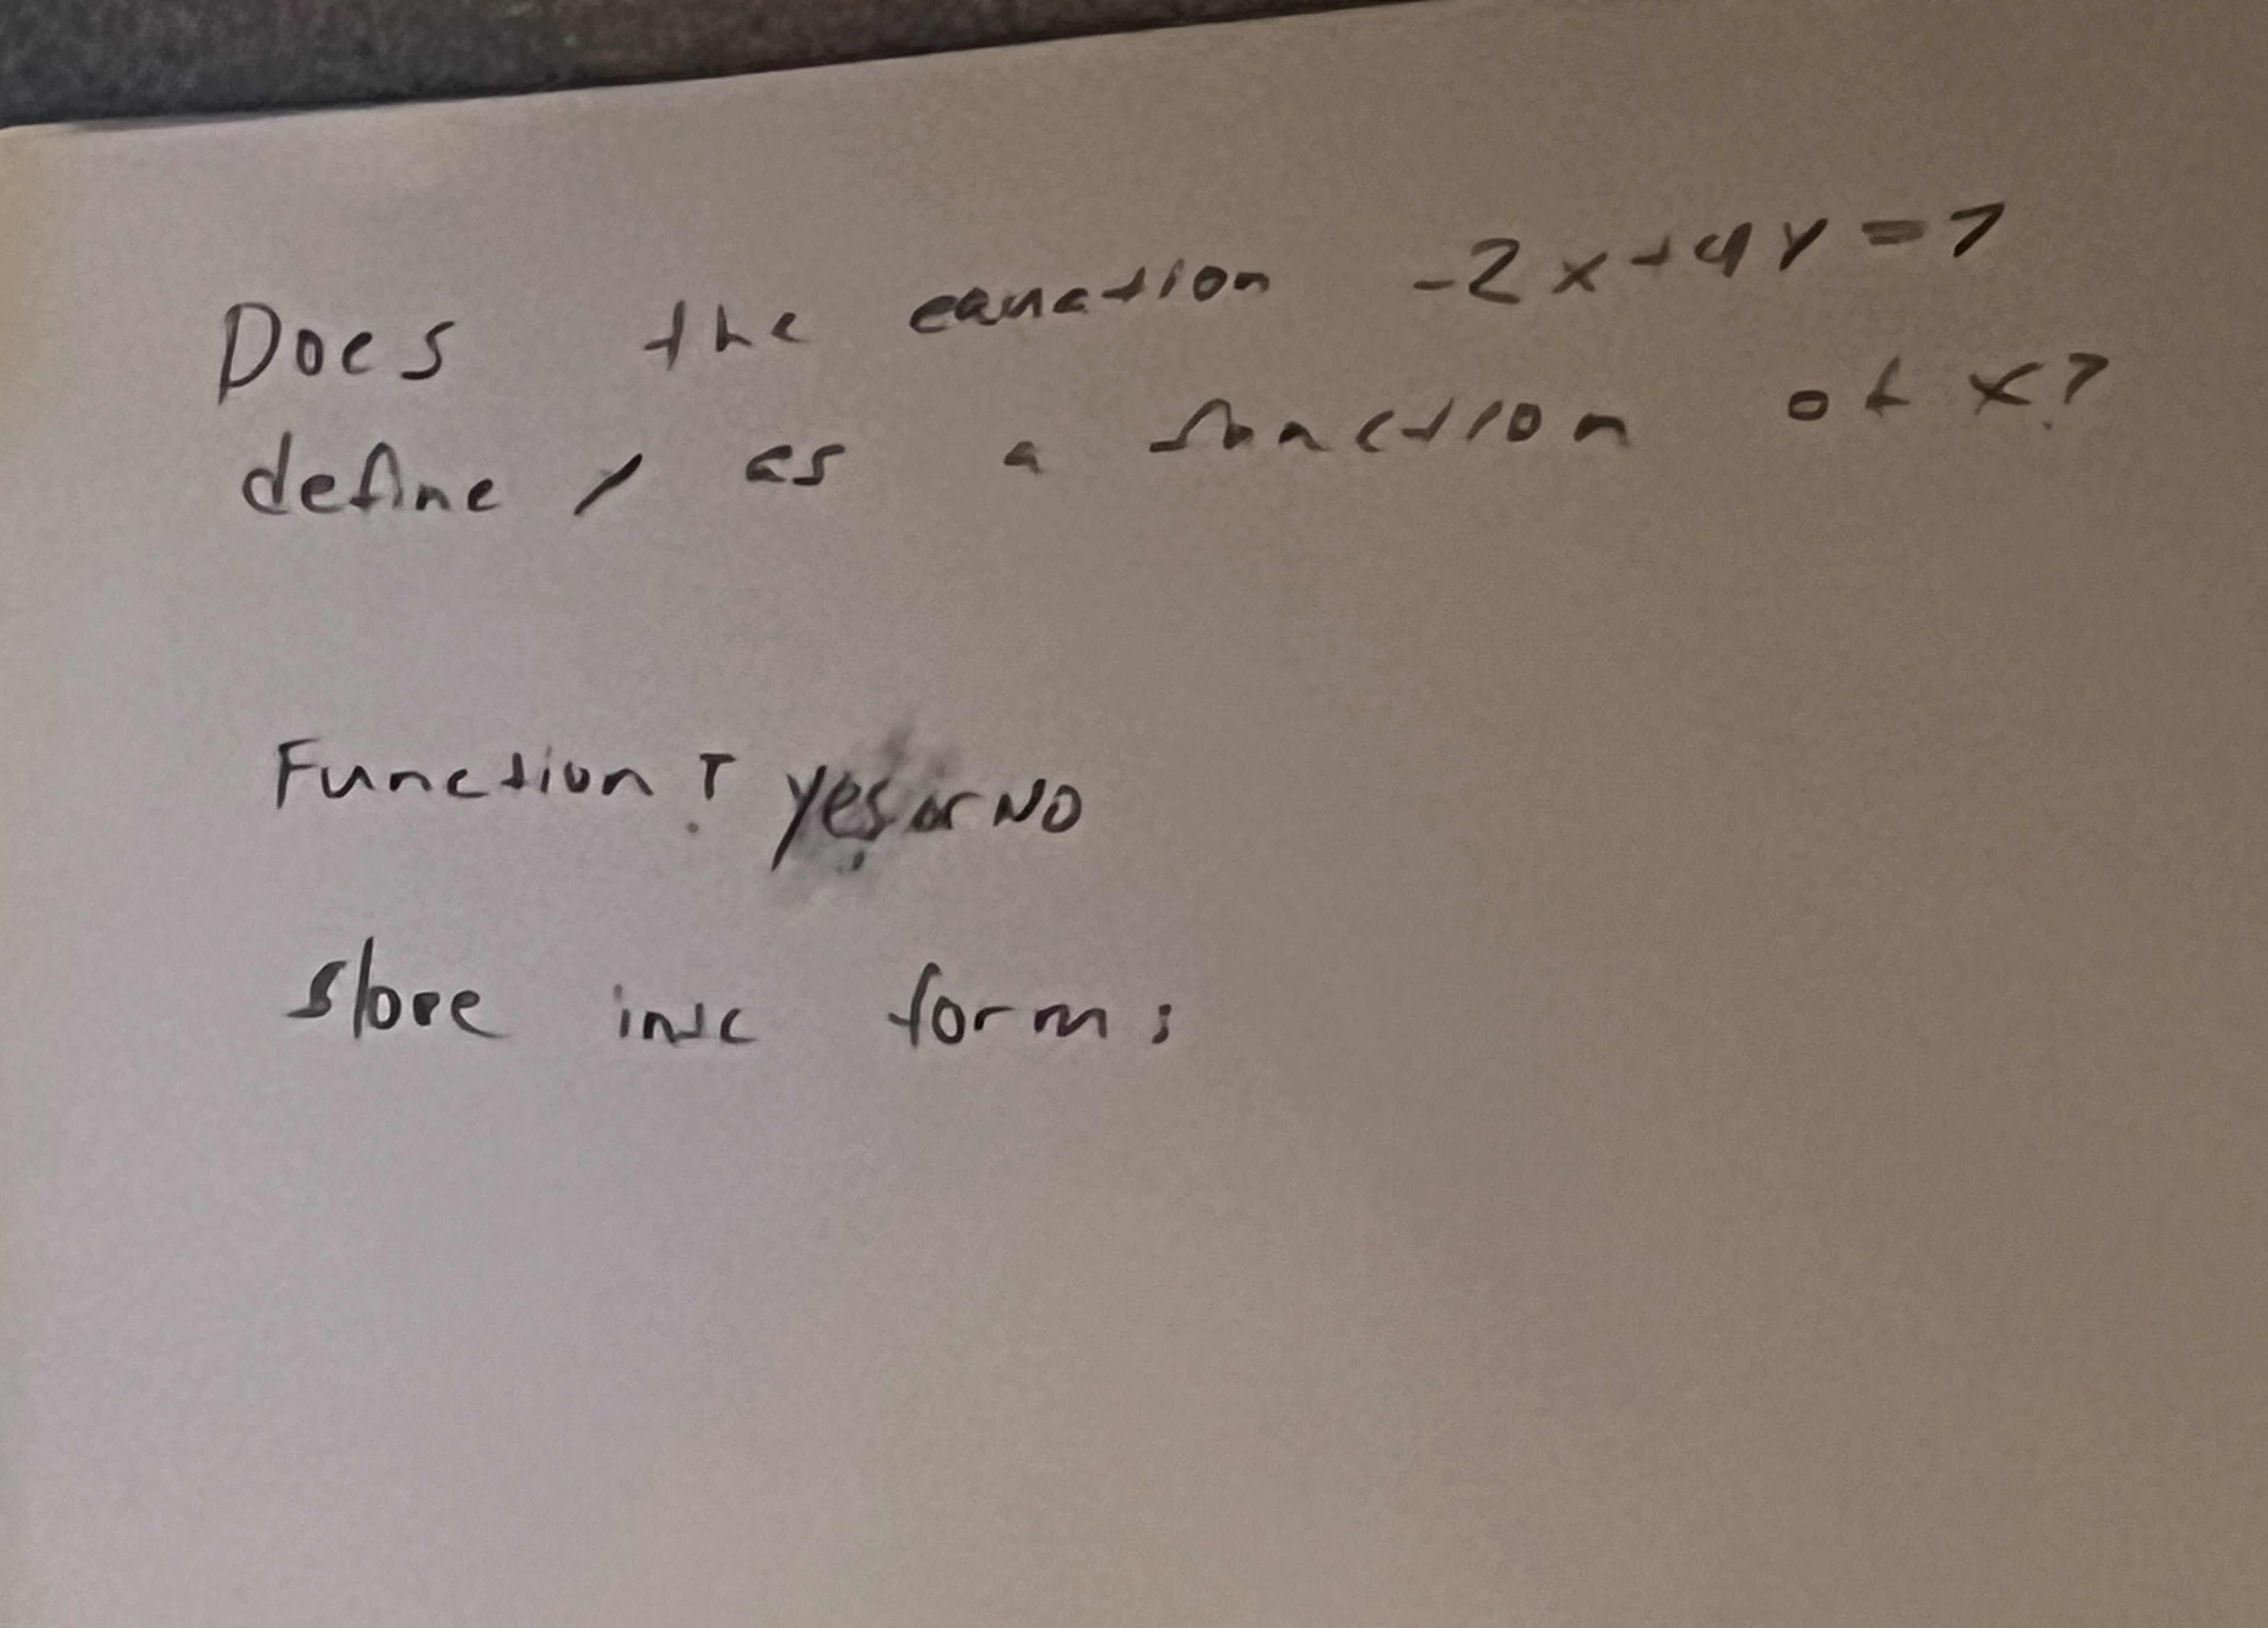 Does the equation -2x+4y=7
define y as a function of x?
Function? yes or NO
slope int form: